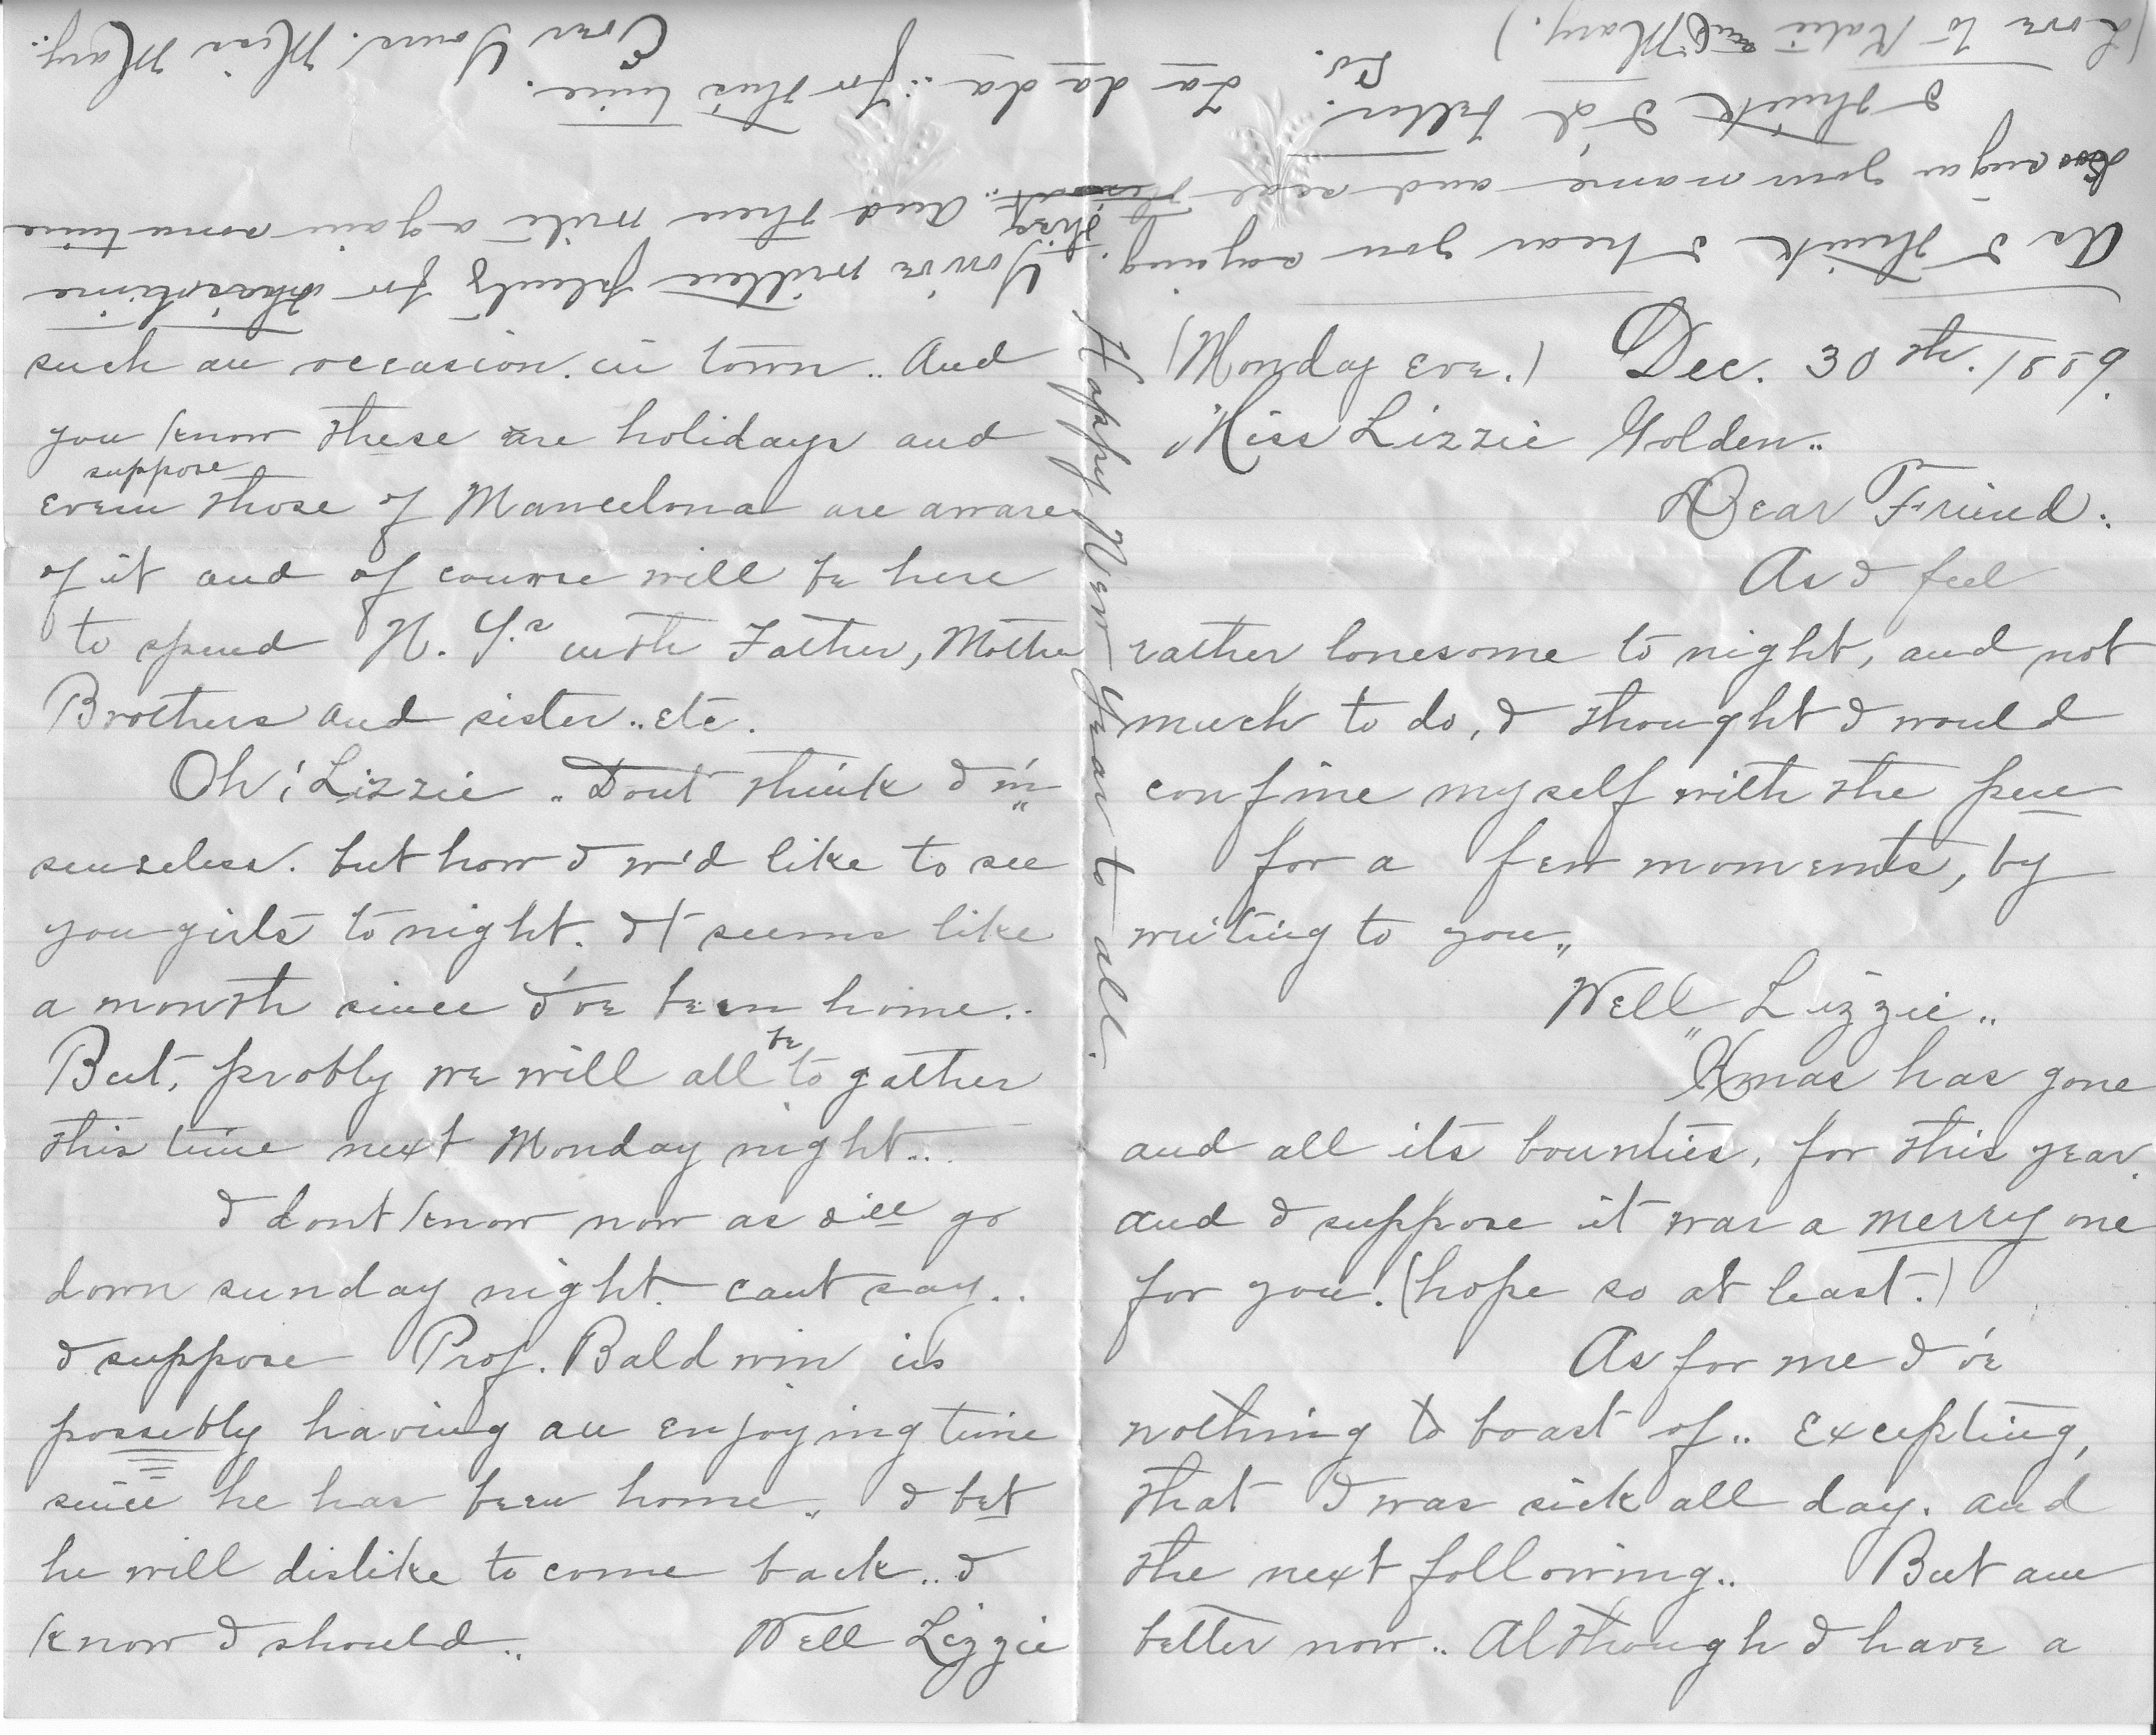 (Monday eve.) Dec. 30th. 1889.
Miss Lizzie Golden..
Dear Friend.
As I feel
rather lonesome to night, and not
much to do, I thought I would
confine myself with the pen
for a few moments, by
writing to you..
Well Lizzie..
Xmas has gone
and all its bounties, for this year.
and I suppose it was a merry one
for you. (hope so at least.)
As for me I've
nothing to boast of.. Excepting,
that I was sick all day. and
the next following.. But am
better now.. Although I have a
such an occasion. in town.. And
you know these are holidays and
suppose
even those of Mancelona are aware
of it and of course will be here
to spend N. Y.s with Father, Mother
Brothers and sister.. etc.
Oh! Lizzie.. Dont think I'm
senseless. but how I w'd like to see
you girls to night. It seems like
a month since I've been home..
be
But, probly we will all to gather
this time next Monday night...
I dont know now as I'll go
down sunday night. cant say..
I suppose Prof. Baldwin is
possibly having an enjoying time
since he has been home.. I bet
he will dislike to come back.. I
know I should.. Well Lizzie
As I think I hear you saying.
You've written plenty for
this
and then write again some time
your name and seal
I think I'd better. So.
La da da.. for this time.
Ever Yours. Miss Mary.
(Love to Katie and Mary.)
Happy New Year to all.